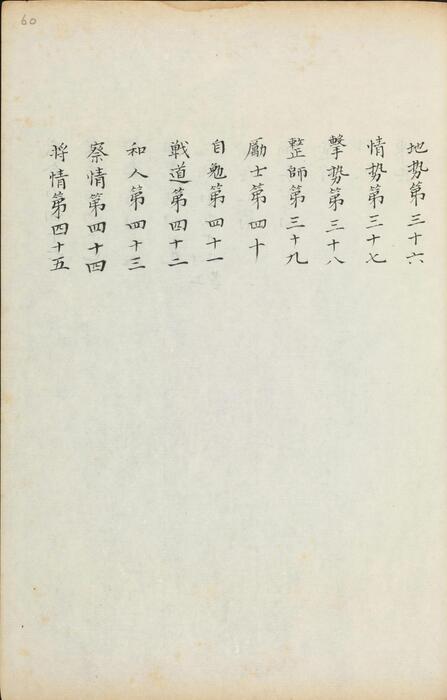 60
地势第三十六
情势第三十七
擊势第三十八
整師第三十九
勵士第四十
自勉第四十一
戦道第四十二
和人第四十三
察情第四十四
将情第四十五